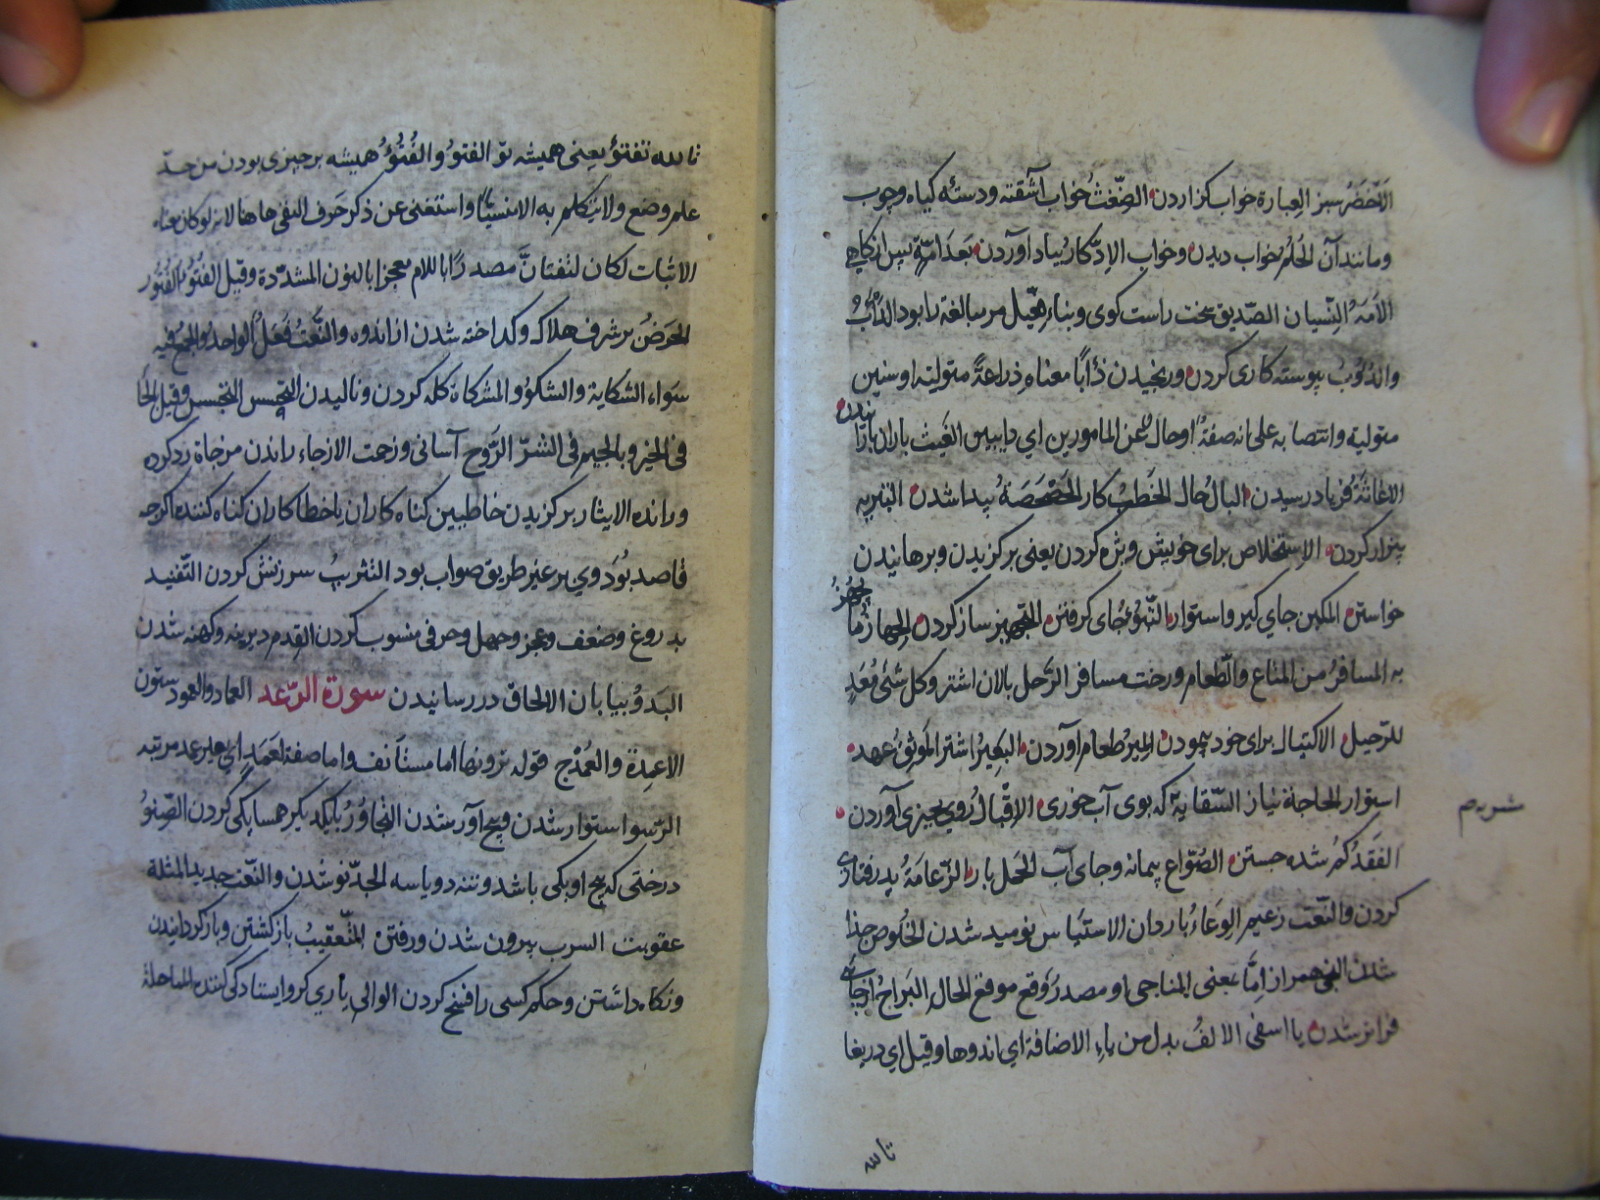 الاخضر سبز العبارة خواب گزاردن الضغث خواب آشفته ودسته گیاه وچوب
ومانند آن الحلم خواب دیدن وخواب الادّکار بیاد آوردن بعد امّة پس از گاهی
الامه النسیان الصدیق سخت راست کوی وبناء فعّیل مر مبالغه را بود الدّأب
والدؤوب پیوسته کاری کردن ورنجیدن دأبا معناه ذراعة متولیة اوسنین
متولیة وانتصابه علی انه صفة اوحال عن المامورین ای دایبین الغیث باران
الاغاثة فریاد رسیدن البال حال الخطب کار الحصحصة پیدا شدن التبریه
بیزار کردن الاستخلاص برای خویش ویژه کردن یعنی برگزیدن وبرهانیدن
خواستن المکین جای گیر واستوار التبوّء جای گرفتن التجهیز ساز کردن الجهاز ما
به المسافر من المتاع والطعام ورخت مسافر الرحل پالان اشتر وکل شئ معد
للرحیل الاکتیال برای خود پیمودن المیر طعام آوردن البعیر اشتر الموثق عهد
استوار الحاجة نیاز السقایة که بوی آب خوری الاقبال روی بچیزی آوردن
الفقد گم شده جستن الصواع پیمانه وجای آب الحمل بار الزعامة پذرفتاری
کردن والنعت زعیم الوعاء باردان الاستیاس نومید شدن الخلوص جدا
شدن النجی همراز امّا بمعنی المناجی او مصدر وقع موقع الحال البراح از جای
فراتر شدن یا اسفی الالف بدل من یاء الاضافة ای اندوها وقیل ای دریغا
تالله
تالله تفتؤ یعنی همیشه تو الفتو والفتوء همیشه بر چیزی بودن من حدّ
علم وضع ولا یتکلم به الا منسیا واستغنی عن ذکر حرف النفی هاهنا لانه لو کان معناه
الاثبات لکان لتفتأنّ مصدرا باللام معجزا بالنون المشددة وقیل الفتو الفتور
الحرض بر شرف هلاک وگداخته شدن از اندوه والنعت فعل الواحد والجمع فیه
سواء الشکایة والشکو والمشکاة گله کردن ونالیدن التحسس التجسس وقیل الحا
فی الخیر وبالجیم فی الشر الرّوح آسانی وزحمت الازجاء راندن مزجاة رد کرده
ورانده الایثار برگزیدن خاطیین گناه کاران یا خطا کاران گناه کننده اگرچه
قاصد بود وی بر غیر طریق صواب بود التثریب سرزنش کردن التفنید
بدروغ وضعف وعجز وجهل وحرفی منسوب کردن القدم دیرینه وکهنه شدن
البدو بیابان الالحاق در رسانیدن سورة الرّعد العماد والعمود ستون
الاعمدة والعمد ج قوله ترونها اما مستأنف واما صفة لعمد ای بغیر عمد مرتبه
الرسو استوار شدن وبیخ آور شدن التجاور بایکدیگر همسایگی کردن الصنو
درختی که بیخ او یکی باشد وتنه دو یا سه الجدّ نو شدن والنعت جدید المثلة
عقوبت السرب بیرون شدن ورفتن التعقیب باز گشتن وباز گردانیدن
ونگاه داشتن وحکم کسی را فسخ کردن الوالی یاری گر وایستادگی کننده المماحلة